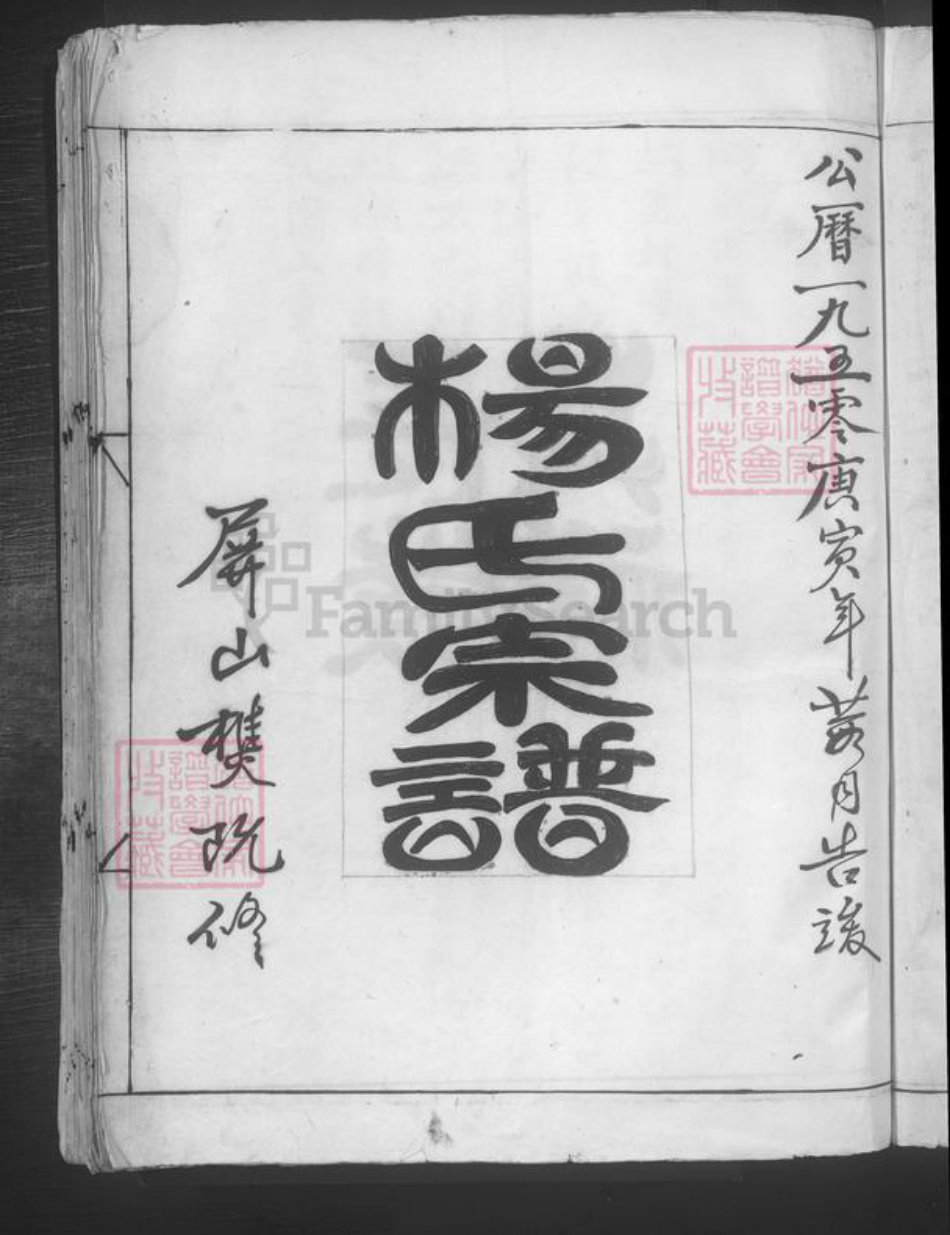 公曆一九五零庚寅年葭月告竣
楊氏宗譜
屏山樊阮修
譜學會收藏
譜學會收藏
FamilySearch